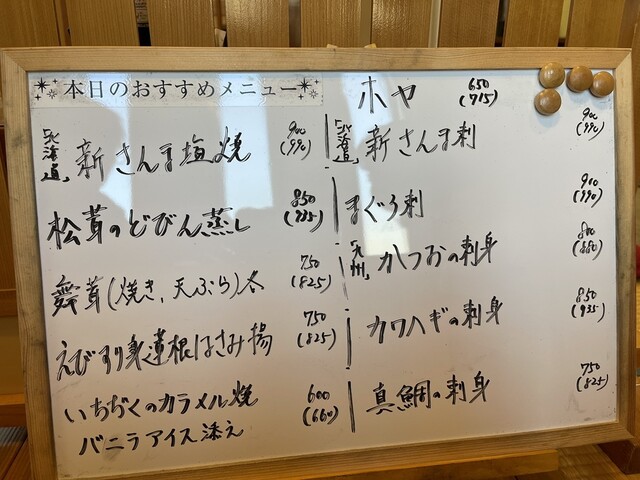 本日のおすすめメニュー
「北海道」新さんま塩焼 900 (990)
松茸のどびん蒸し 850 (935)
舞茸(焼き、天ぷら)各 750 (825)
えびすり身蓮根はさみ揚 750 (825)
いちぢくのカラメル焼 600 (660)
バニラアイス添え
ホヤ 650 (715)
「北海道」新さんま刺 900 (990)
まぐろ刺 900 (990)
「九州」かつおの刺身 800 (880)
カワハギの刺身 850 (935)
真鯛の刺身 750 (825)